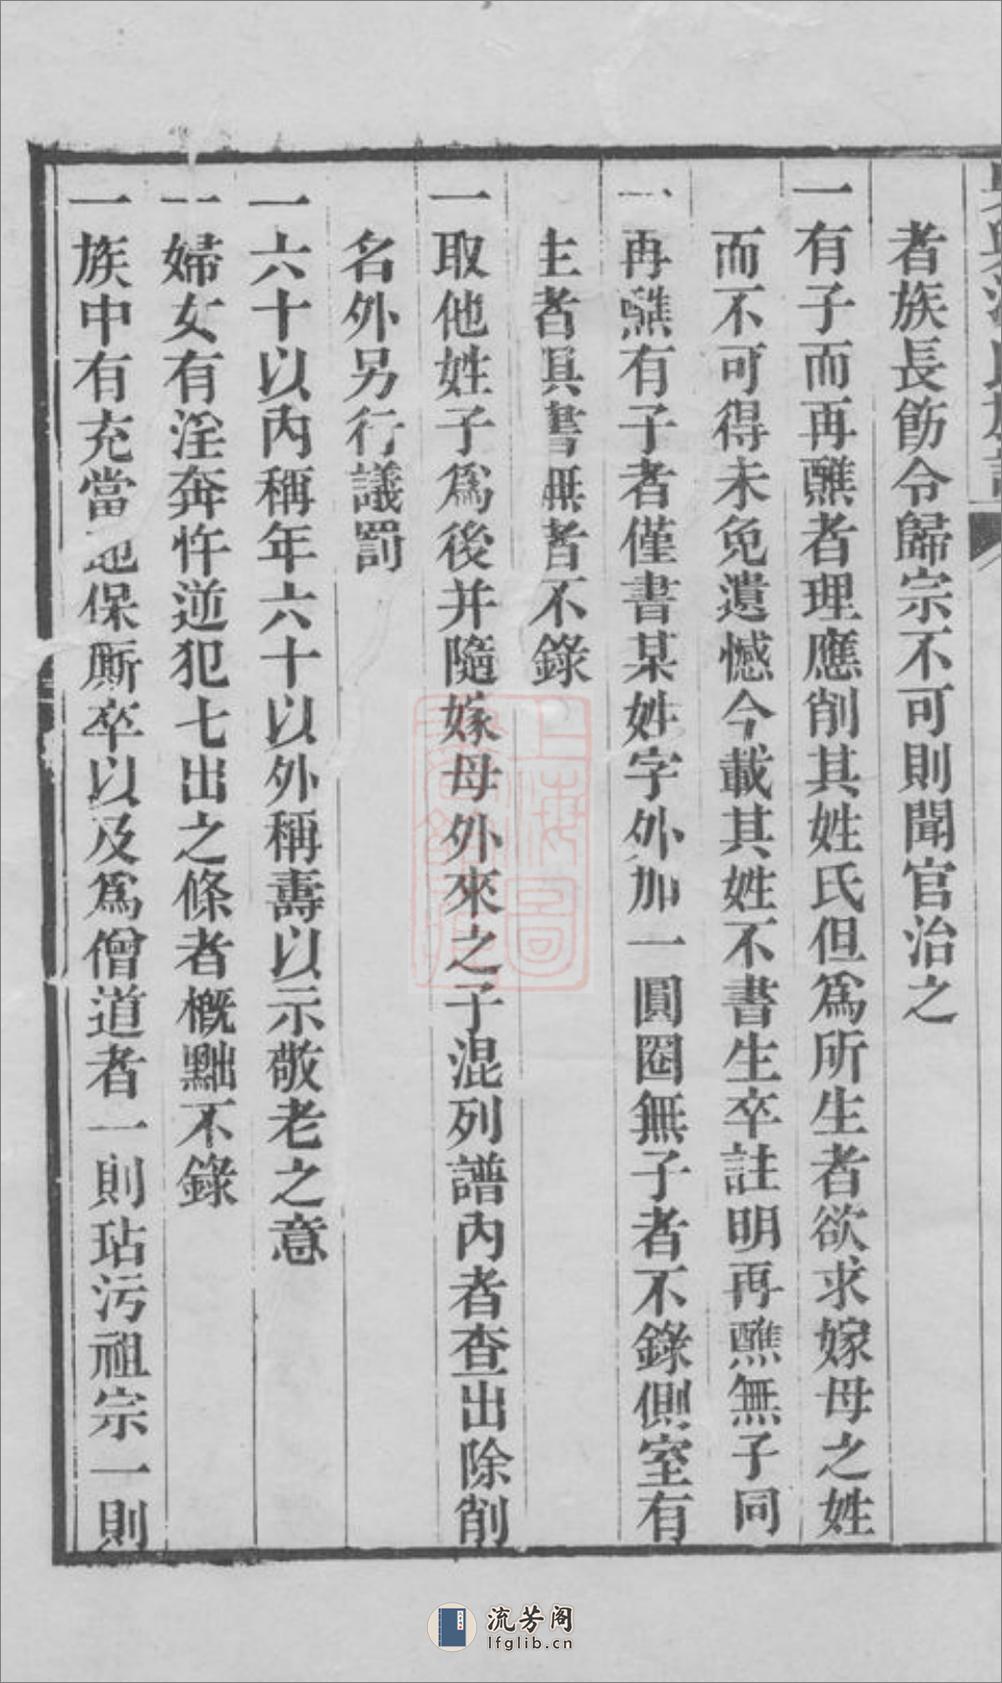 者族長飭令歸宗不可則聞官治之
一有子而再醮者理應削其姓氏但爲所生者欲求嫁母之姓
而不可得未免遺憾今載其姓不書生卒註明再醮無子同
一再醮有子者僅書某姓字外加一圓圈無子者不錄側室有
主者具書無者不錄
一取他姓子爲後并隨嫁母外來之子混列譜內者查出除削
名外另行議罰
一六十以內稱年六十以外稱壽以示敬老之意
一婦女有淫奔忤逆犯七出之條者概黜不錄
一族中有充當地保厮卒以及爲僧道者一則玷污祖宗一則
上海圖
流芳阁
lfglib.cn